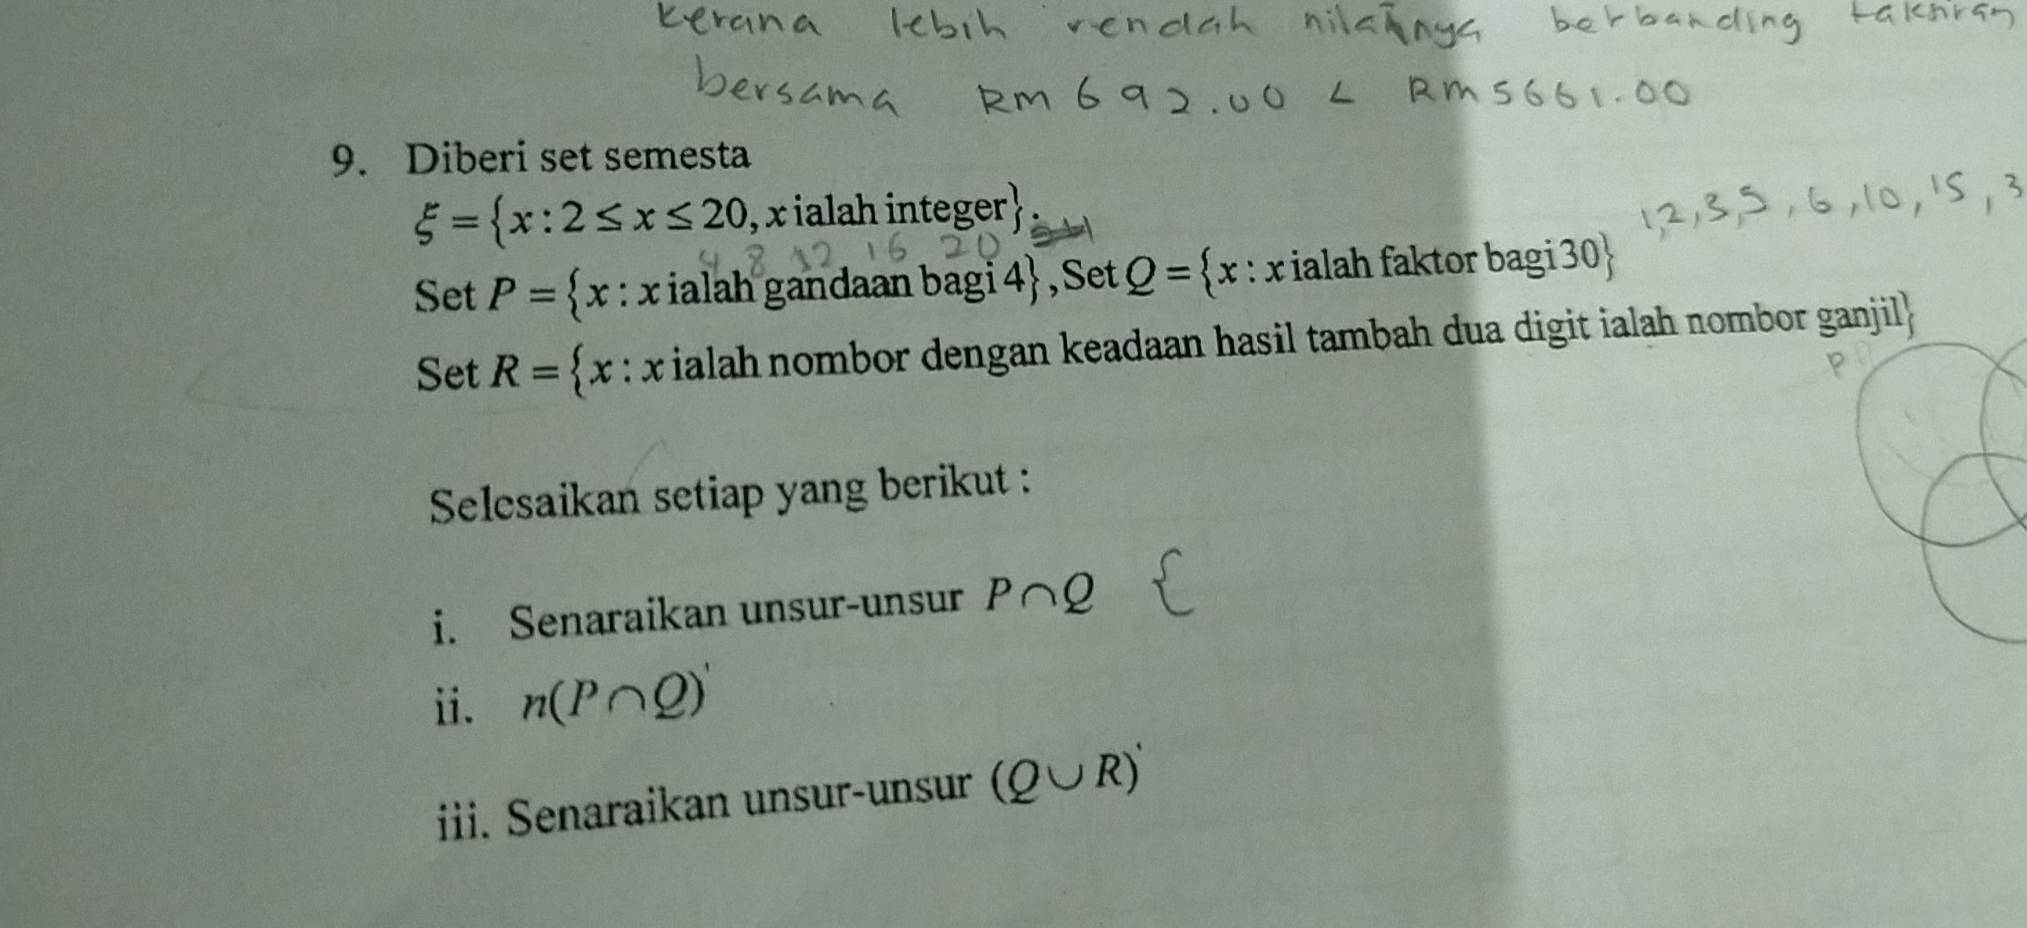 kerana lebih rendah nilainya berbanding
bersama RM 692.00 < RM 5661.00
9. Diberi set semesta
ξ = {x : 2 ≤ x ≤ 20, x ialah integer}.
1,2,3,5,6,10,15,3
4 8 12 16 20
Set P = {x : x ialah gandaan bagi 4}, Set Q = {x : x ialah faktor bagi 30}
Set R = {x : x ialah nombor dengan keadaan hasil tambah dua digit ialah nombor ganjil}
P
Selesaikan setiap yang berikut :
i. Senaraikan unsur-unsur P∩Q {
ii. n(P∩Q)'
iii. Senaraikan unsur-unsur (Q∪R)'